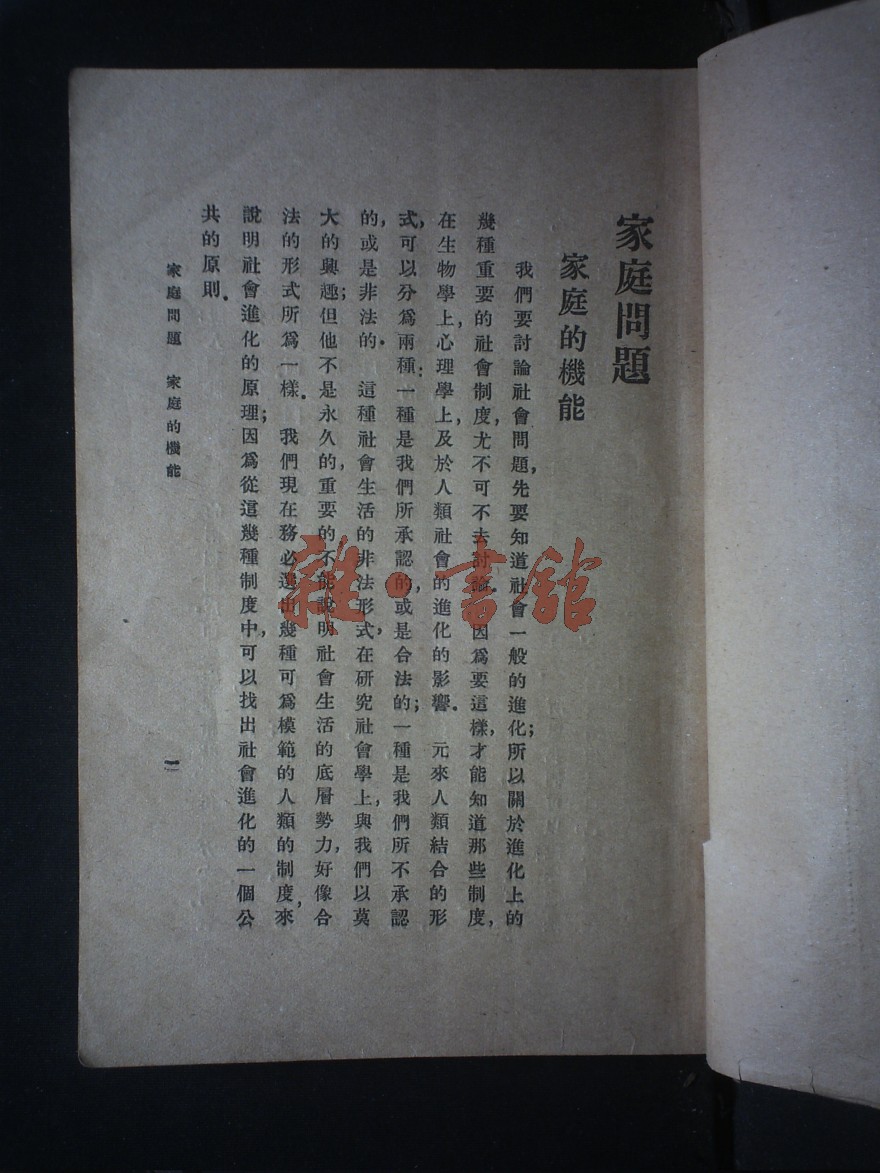 家庭問題
家庭的機能
我們要討論社會問題,先要知道社會一般的進化;所以關於進化上的
幾種重要的社會制度,尤不可不去討論.因爲要這樣,才能知道那些制度,
在生物學上,心理學上,及於人類社會的進化的影響. 元來人類結合的形
式,可以分爲兩種:一種是我們所承認的,或是合法的;一種是我們所不承認
的,或是非法的. 這種社會生活的非法形式,在研究社會學上,與我們以莫
大的興趣;但他不是永久的,重要的,不能說明社會生活的底層勢力,好像合
法的形式所爲一樣. 我們現在務必選出幾種可爲模範的人類的制度,來
說明社會進化的原理;因爲從這幾種制度中,可以找出社會進化的一個公
共的原則.
家庭問題 家庭的機能
一
雜·書館